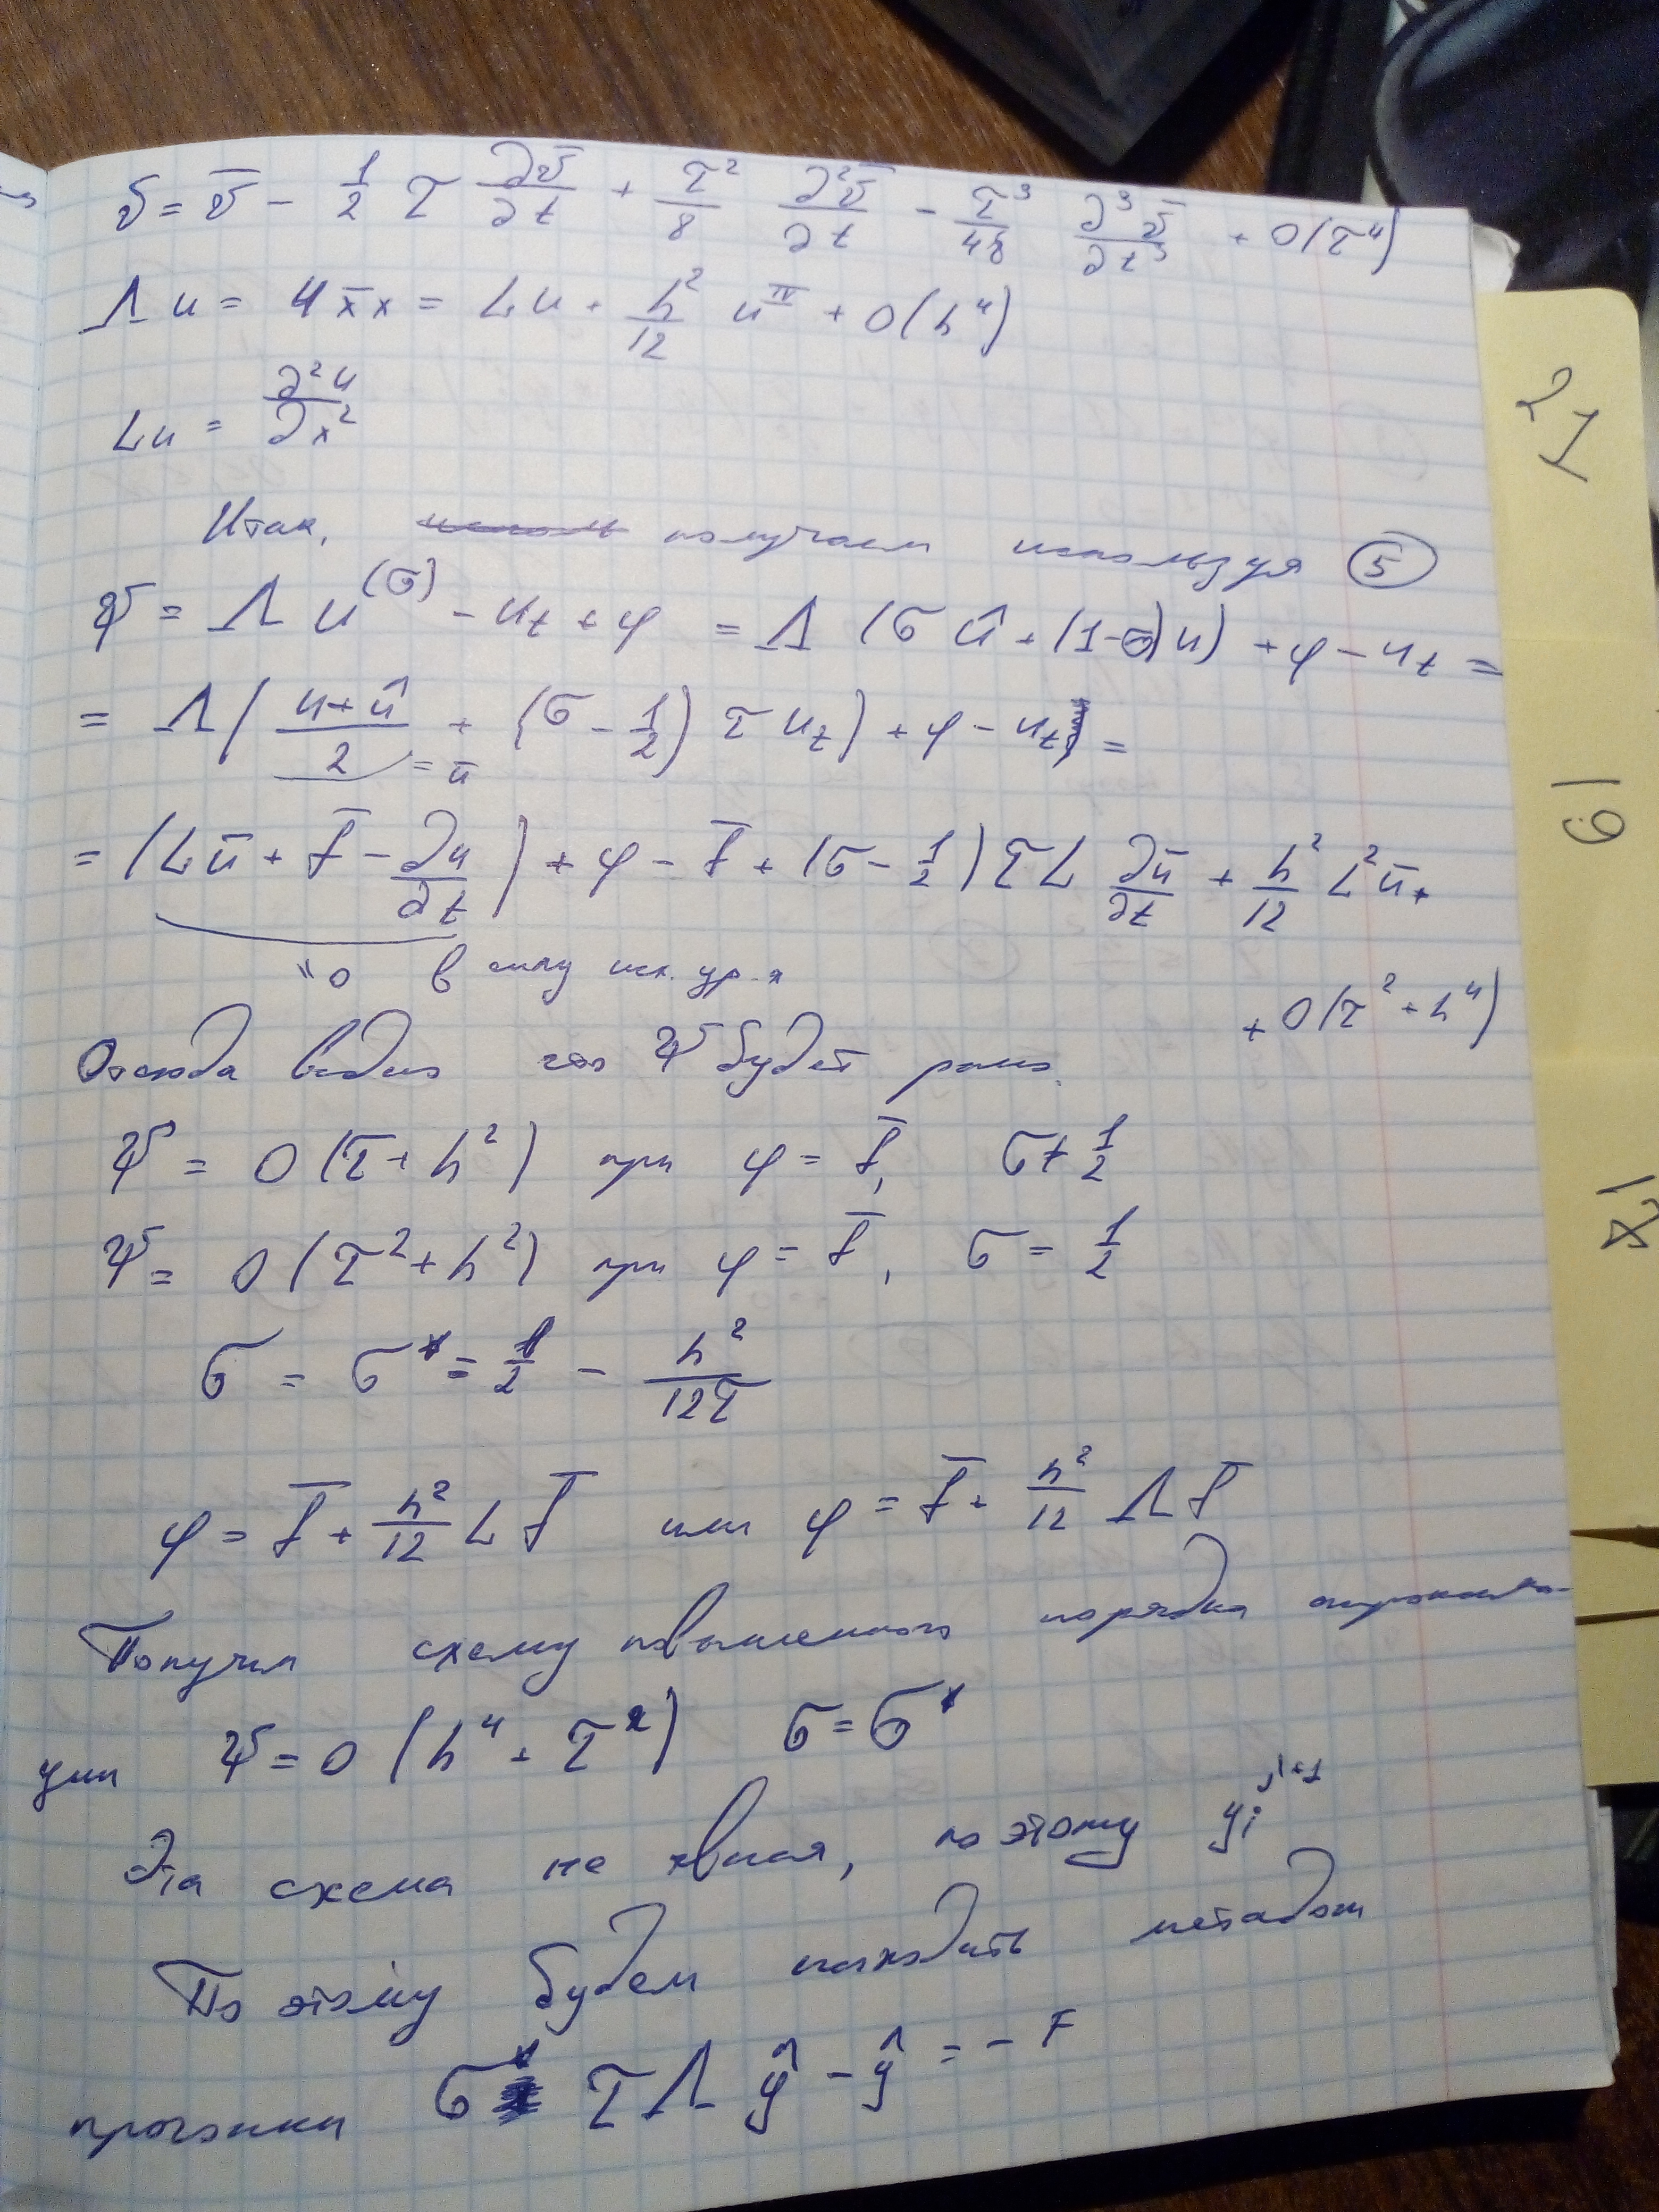 v = v̄ - 1/2 τ ∂v̄/∂t + τ²/8 ∂²v̄/∂t - τ³/48 ∂³v̄/∂t³ + O(τ⁴)
Λu = u x̄x = Lu + h²/12 u^IV + O(h⁴)
Lu = ∂²u/∂x²
Итак, получаем используя ⑤
ψ = Λu^(σ) - u_t + φ = Λ(σû + (1-σ)u) + φ - u_t =
= Λ( (u+û)/2 = ū + (σ - 1/2) τ u_t) + φ - u_t =
= (Lū + f̄ - ∂u/∂t) + φ - f̄ + (σ - 1/2) τ L ∂ū/∂t + h²/12 L²ū +
"0 в силу исх. ур-я
+ O(τ² + h⁴)
Отсюда видно что ψ будет равно
ψ = O(τ + h²) при φ = f̄, σ ≠ 1/2
ψ = O(τ² + h²) при φ = f̄, σ = 1/2
σ = σ* = 1/2 - h²/12τ
φ = f̄ + h²/12 L f̄ или φ = f̄ + h²/12 Λ f̄
Получим схему повышенного порядка аппроксима-
ции ψ = O(h⁴ + τ²) σ = σ*
Эта схема не явная, по этому y_i^{j+1}
По этому будем находить методом
прогонки σ* τ Λ ŷ - ŷ = - F
21
19
18